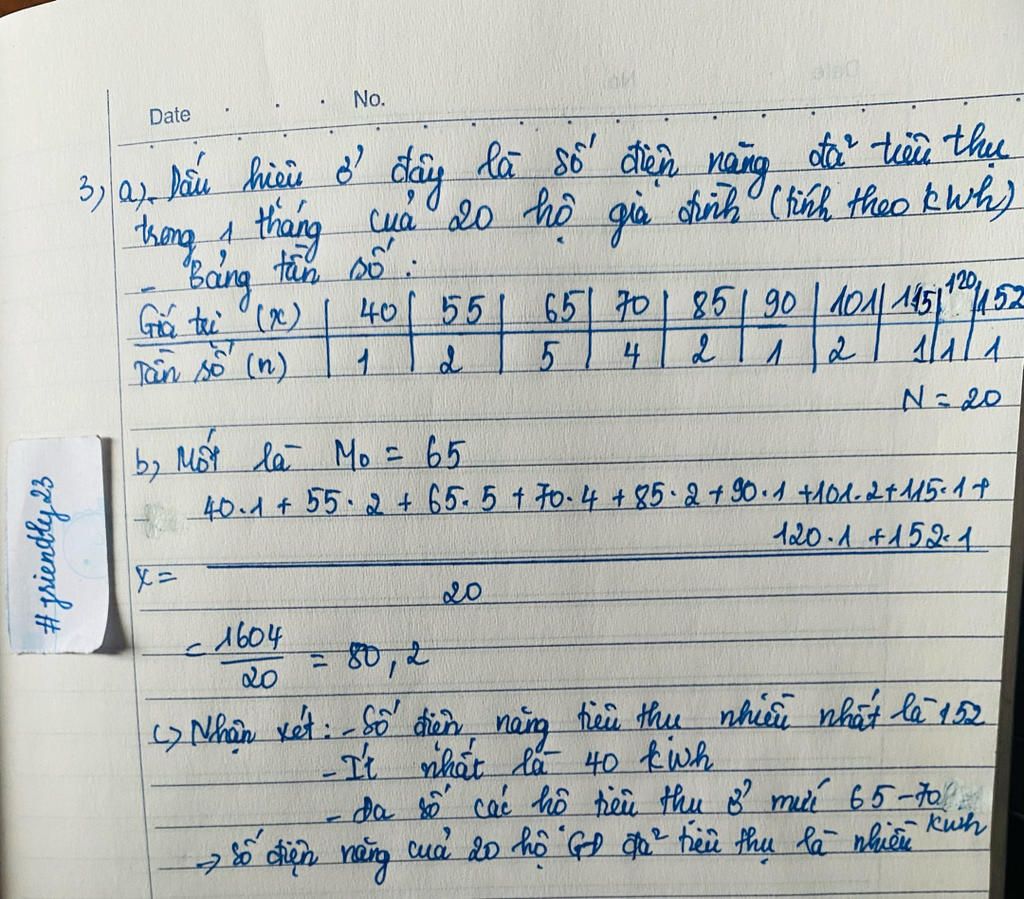 Date . . . No.
3, a). Dấu hiệu ở đây là số điện năng đã tiêu thụ
trong 1 tháng của 20 hộ gia đình (tính theo kWh)
- Bảng tần số:
Giá trị (x) | 40 | 55 | 65 | 70 | 85 | 90 | 101 | 115 | 120 | 152
Tần số (n) | 1 | 2 | 5 | 4 | 2 | 1 | 2 | 1 | 1 | 1
N = 20
b, Mốt là M₀ = 65
40.1 + 55.2 + 65.5 + 70.4 + 85.2 + 90.1 + 101.2 + 115.1 +
120.1 + 152.1
X =
20
= 1604/20 = 80,2
c) Nhận xét: - Số điện năng tiêu thụ nhiều nhất là 152
- Ít nhất là 40 kWh
- Đa số các hộ tiêu thụ ở mức 65-70
kWh
=> Số điện năng của 20 hộ GĐ đã tiêu thụ là nhiều
#friendly23